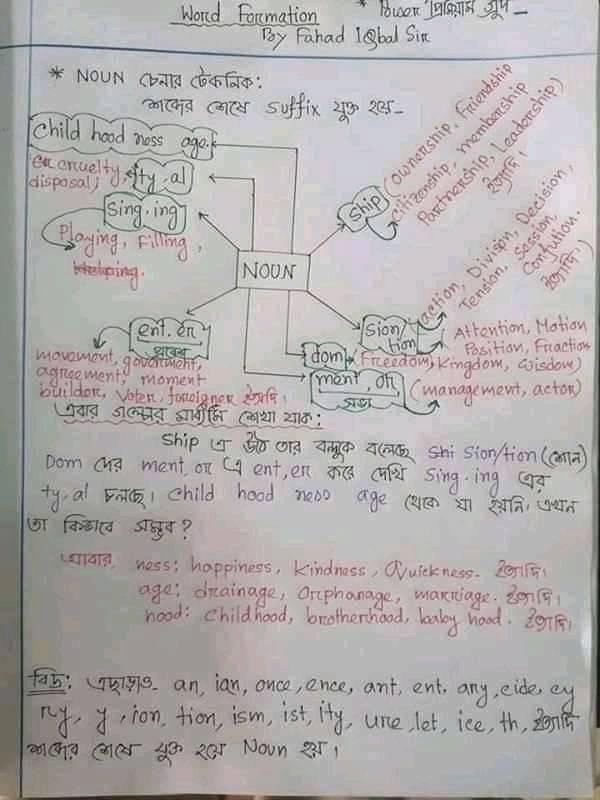 Word Formation
* Power প্রিমিয়াম গ্রুপ -
By Fahad IQbal Sir
* NOUN চেনার টেকনিক:
শব্দের শেষে suffix যুক্ত হয়-
child hood ness age.
cruelty,
disposal;
ty, al
sing. ing
Playing, Filling,
NOUN
ship
(ownership, Friendship
citizenship, membership
Partnership, Leadership)
ইত্যাদি।
sion/
tion
Division, Decision,
Tension, Session,
ইত্যাদি।)
Attention, Motion
Position, Fraction
dom
(Freedom, Kingdom, wisdom)
ment, or
(management, actor)
ent. er
movement, government,
agreement, moment
builder, Voter, foreigner ইত্যাদি।
এবার গল্পের মাধ্যমে শেখা যাক:
Ship এ উঠে তার বন্ধুকে বলেছে Shi Sion/tion (শোন)
Dom দের ment, or এ ent, er করে দেখি Sing. ing এর
ty, al চলছে। child hood ness age থেকে যা হয়নি, এখন
তা কিভাবে সম্ভব?
আবার, ness: happiness, Kindness, Quickness. ইত্যাদি।
age: drainage, Orphanage, marriage. ইত্যাদি।
hood: childhood, brotherhood, baby hood. ইত্যাদি।
বিদ্র: এছাড়াও an, ian, ance, ence, ant, ent, ary, cide, cy
ry, y, ion, tion, ism, ist, ity, ure, let, ice, th, ইত্যাদি
শব্দের শেষে যুক্ত হয়ে Noun হয়।